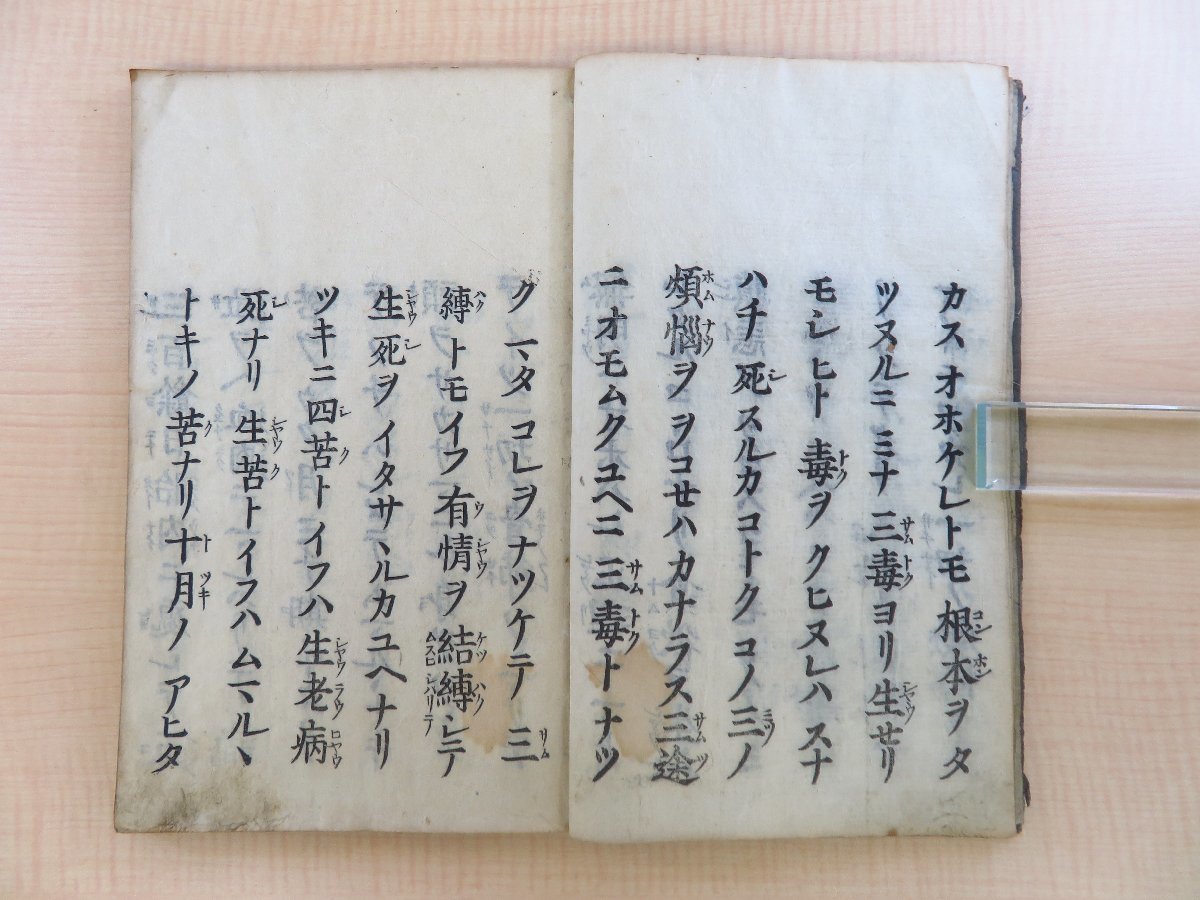 カスオホケレトモ根本ヲタ
ツヌルニミナ三毒ヨリ生セリ
モシヒト毒ヲクヒヌレハスナ
ハチ死スルカコトクコノ三ノ
煩惱ヲヲコセハカナラス三途
ニオモムクユヘニ三毒トナツ
クマタコレヲナツケテ三
縛トモイフ有情ヲ結縛シテ
生死ヲイタサヽルカユヘナリ
ツキニ四苦トイフハ生老病
死ナリ生苦トイフハムマルヽ
トキノ苦ナリ十月ノアヒタ